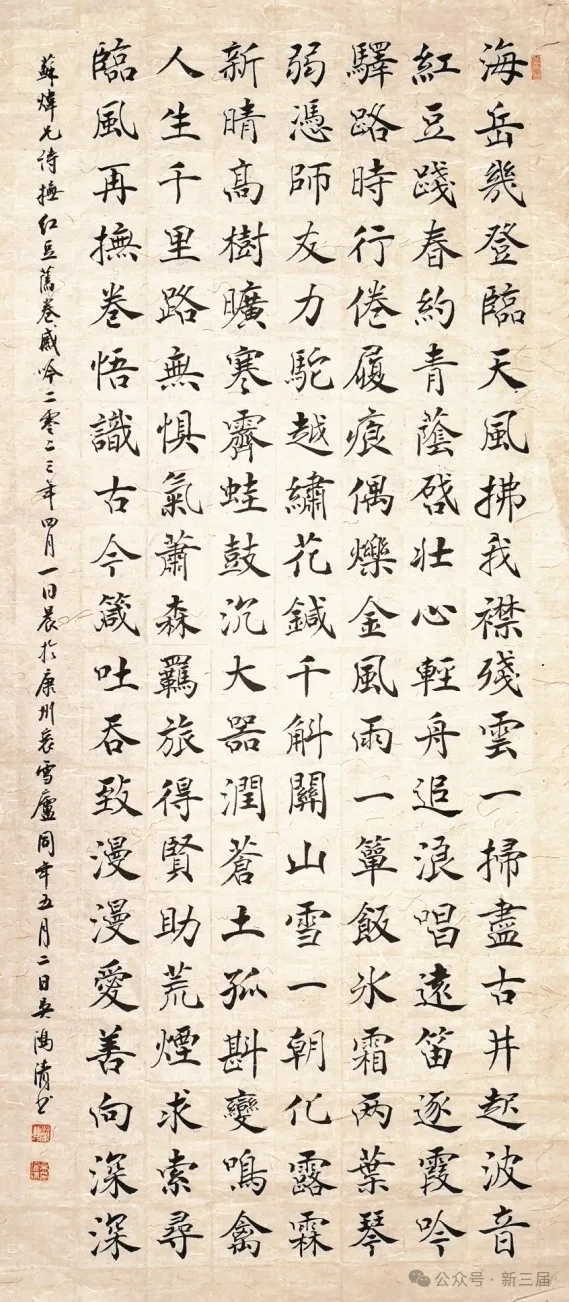 海岳幾登臨天風拂我襟殘雲一掃盡古井起波音
紅豆踐春約青蔭啓壯心輕舟追浪唱遠笛逐霞吟
驛路時行倦履痕偶爍金風雨一簞飯氷霜兩葉琴
弱憑師友力駝越繡花鍼千斛關山雪一朝化露霖
新晴高樹曠寒霽蛙鼓沉大器潤蒼土孤斟變鳴禽
人生千里路無惧氣蕭森羈旅得賢助荒煙求索尋
臨風再撫卷悟識古今箴吐吞致漫漫愛善向深深
蘇煒兄詩撫紅豆舊卷感吟二零二三年四月一日晨於康州衮雪廬同年五月二日吳鴻清書
公众号·新三届